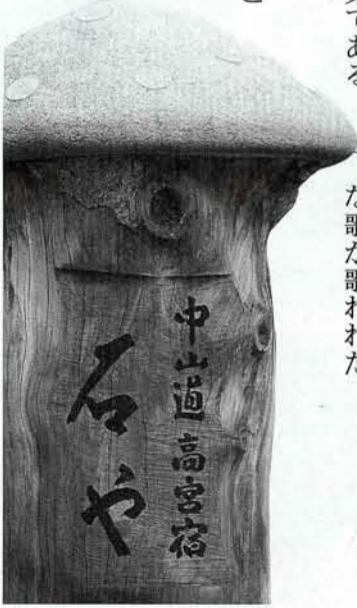 である
と
な歌が歌われた
中山道 高宮宿
石や